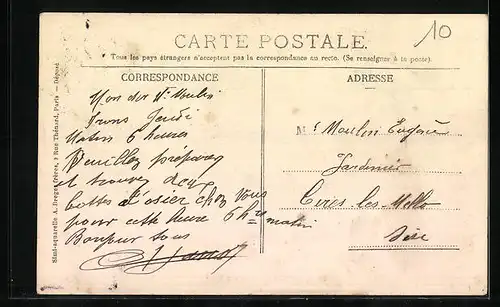 10
CARTE POSTALE.
Tous les pays étrangers n'acceptent pas la correspondance au recto. (Se renseigner à la poste).
CORRESPONDANCE
Mon der Vt Moulin
Irons Jeudi
Matin 6 heures
Veuillez préparer
et trouver des
bottes d'osier chez Vous
pour cette heure 6 hres matin
Bonjour tous
ADRESSE
Mr Moulin Eugène
Jardinier
Cires les Mello
Oise
Simi-aquarelle A. Breger frères, 9 Rue Thénard, Paris — Déposé